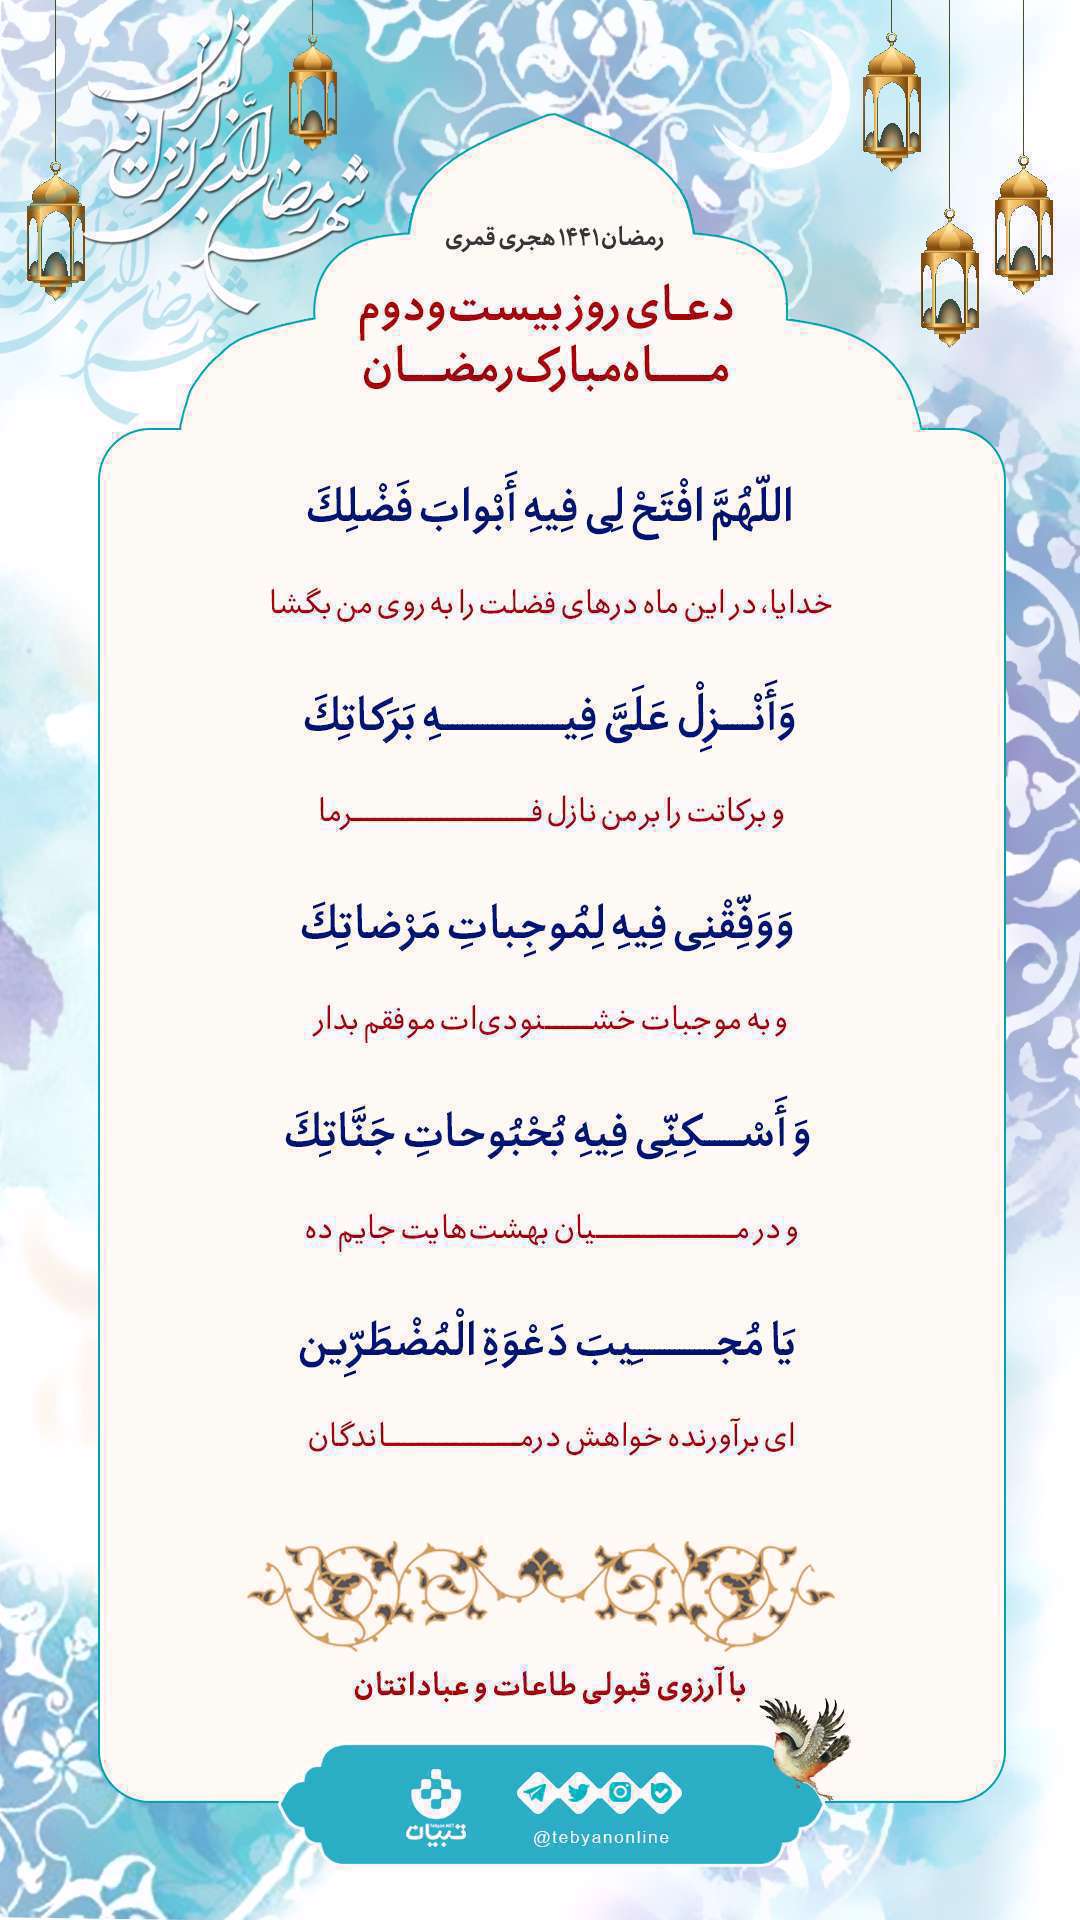 شهر رمضان الذی انزل فیه القرآن
رمضان ۱۴۴۱ هجری قمری
دعای روز بیست‌ودوم
ماه مبارک رمضان
اللّهُمَّ افْتَحْ لِی فِیهِ أَبْوابَ فَضْلِكَ
خدایا، در این ماه درهای فضلت را به روی من بگشا
وَأَنْزِلْ عَلَیَّ فِیهِ بَرَكاتِكَ
و برکاتت را بر من نازل فرما
وَوَفِّقْنِی فِیهِ لِمُوجِباتِ مَرْضاتِكَ
و به موجبات خشنودی‌ات موفقم بدار
وَ أَسْكِنِّی فِیهِ بُحْبُوحاتِ جَنَّاتِكَ
و در میان بهشت‌هایت جایم ده
یَا مُجِیبَ دَعْوَةِ الْمُضْطَرِّین
ای برآورنده خواهش درماندگان
با آرزوی قبولی طاعات و عباداتتان
تبیان
@tebyanonline